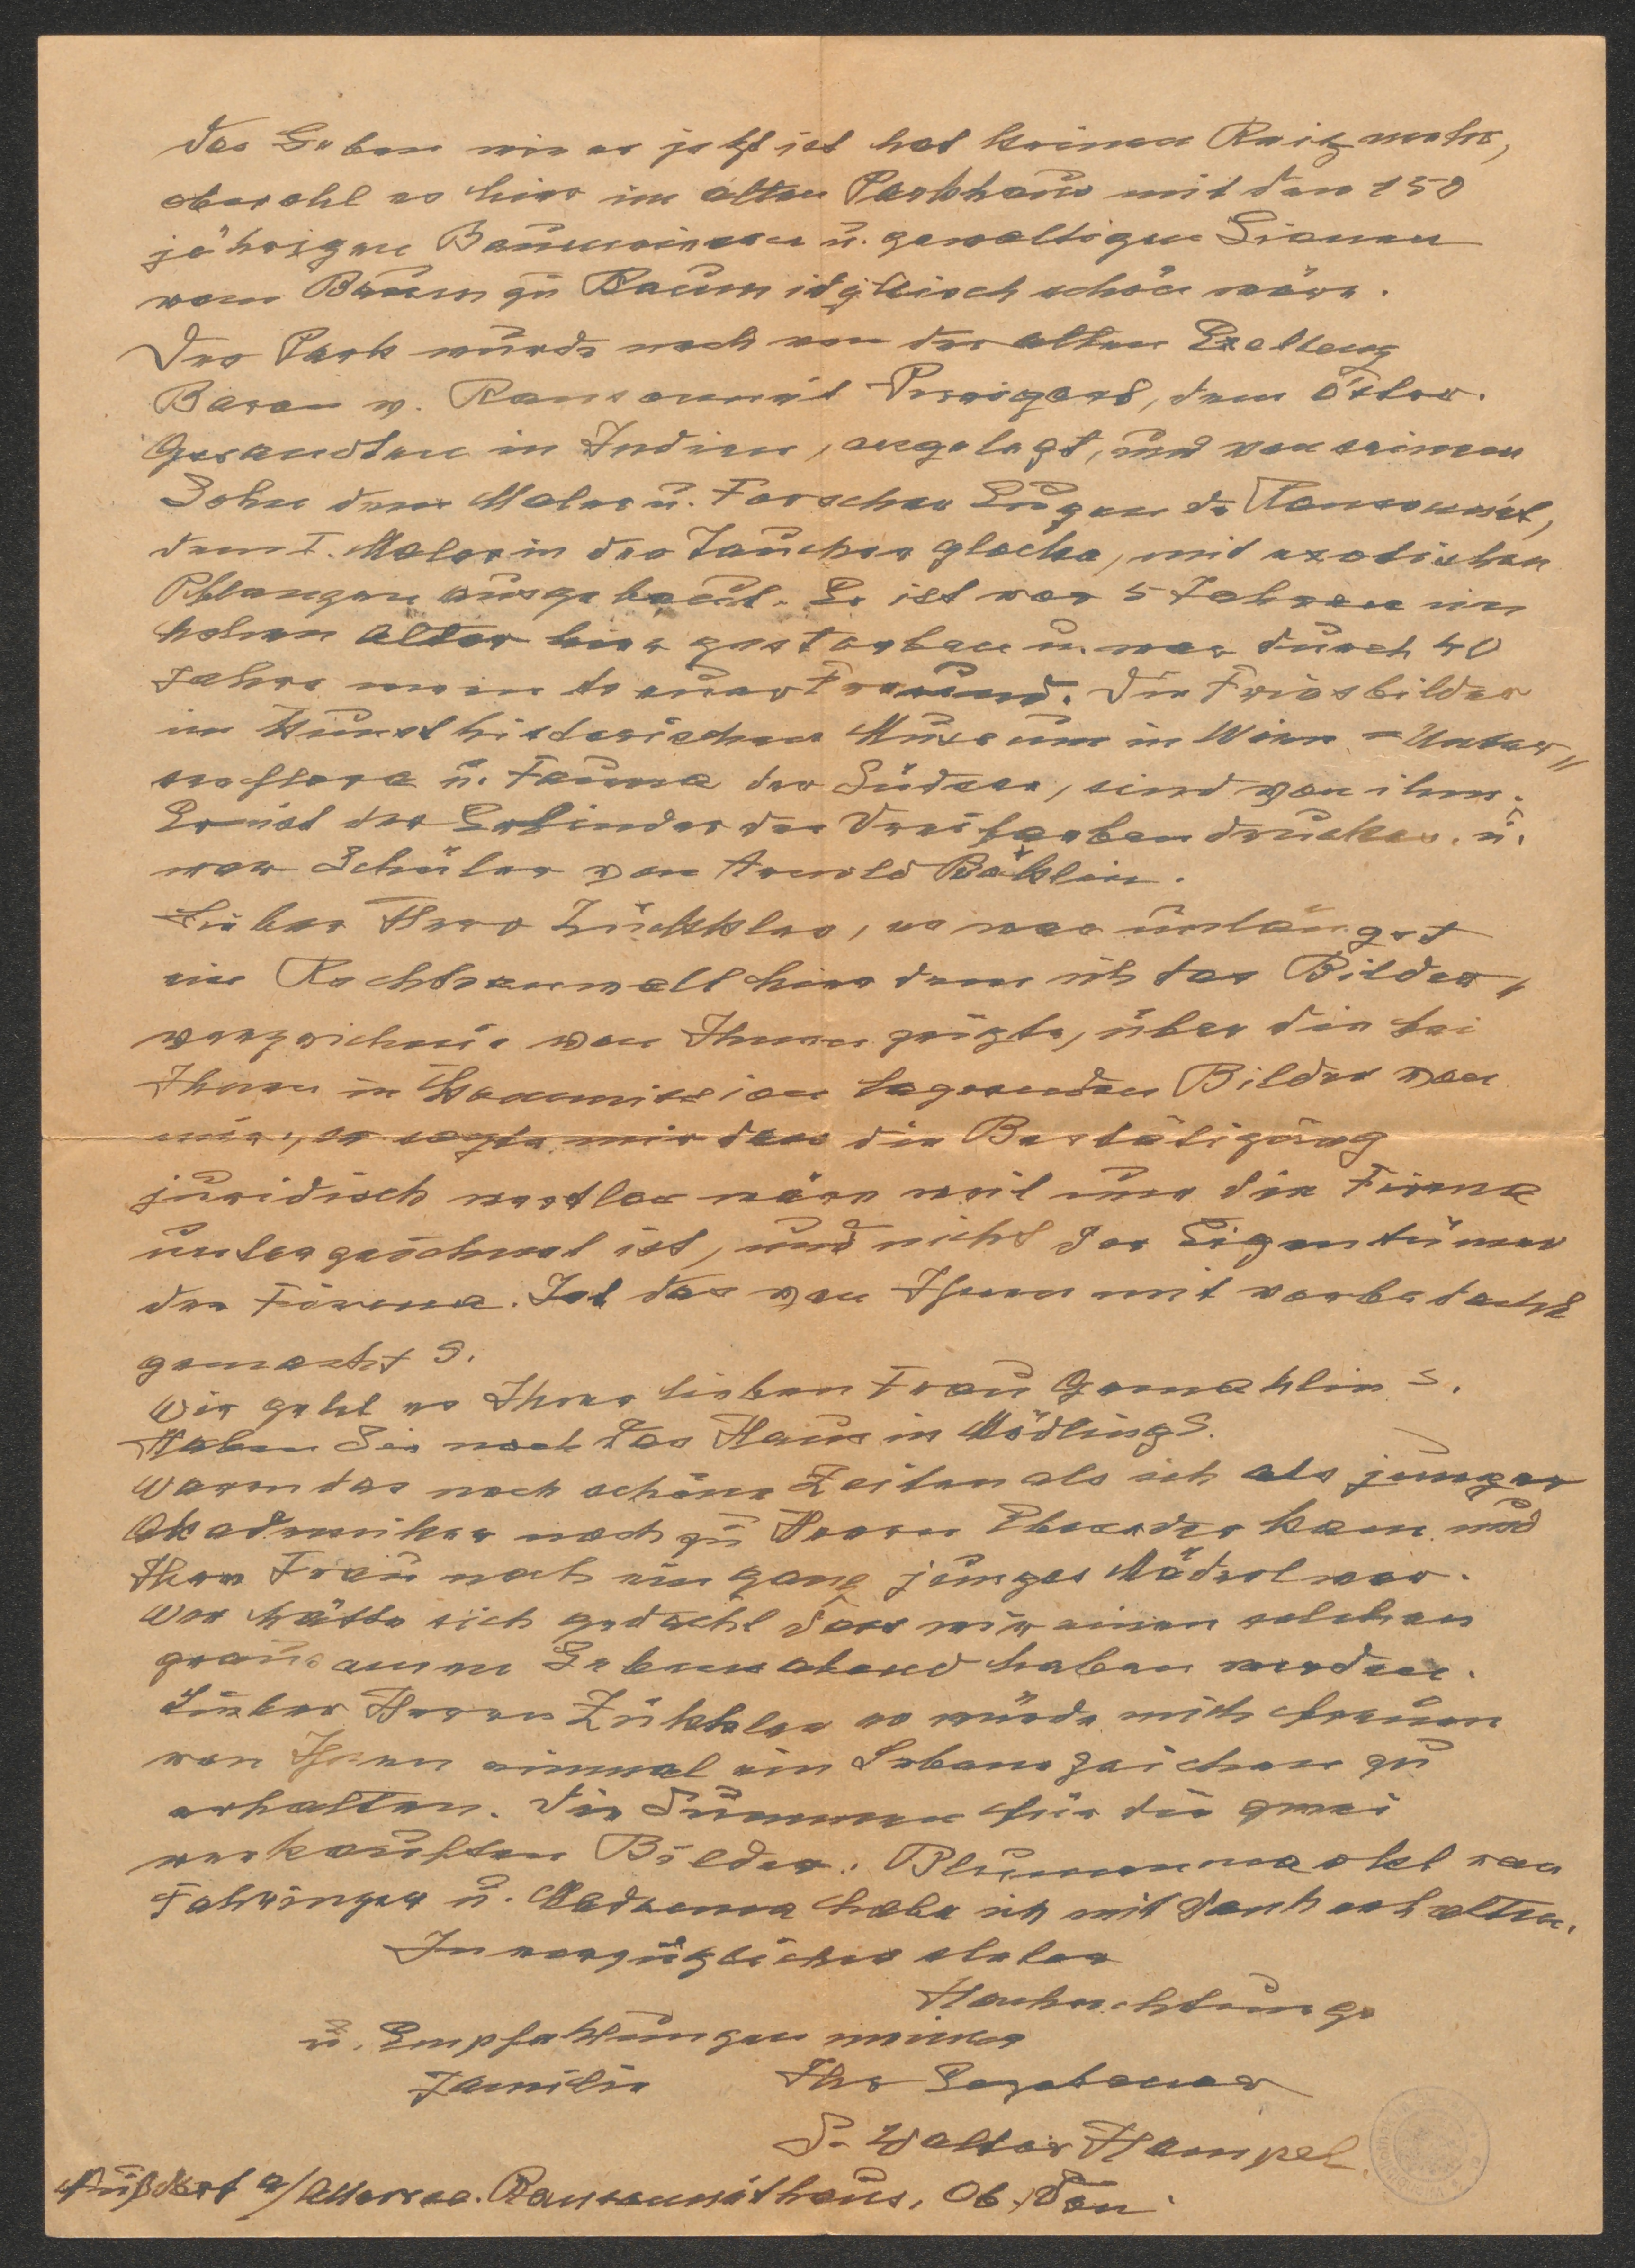 Das Leben wie es jetzt ist hat keinen Reiz mehr,
obwohl es hier im alten Parkhaus mit den 150
jährigen Baumriesen u. gewaltigen Lianen
von Baum zu Baum idyllisch schön wäre.
Der Park wurde noch von der alten Exellenz
Baron v. Ransonnet, dem Öster.
Gesandten in Indien, angelegt, und von seinem
Sohn dem Maler u. Forscher Eugen de Ransonnet,
dem I. Maler in der Taucherglocke, mit exotischen
Pflanzen ausgebaut. Er ist vor 5 Jahren im
hohen Alter hier gestorben u. war durch 40
Jahre mein treuer Freund. Die Friesbilder
im Kunsthistorischen Museum in Wien = Unter=
seeflora u. Fauna der Südsee, sind von ihm.
Er ist der Erfinder des Dreifarbendruckes. u.
war Schüler von Arnold Böklin.
Lieber Herr Zückkler, es war unlängst
ein Rechtsanwalt hier dem ich das Bilder=
verzeichnis von Ihnen zeigte, über die bei
Ihnen in Kommission lagernden Bilder von
mir, er sagte mir dass die Bestätigung
juridisch wertlos wäre weil nur die Firma
unterzeichnet ist, und nicht der Eigentümer
der Firma. Ist das von Ihnen mit vorbedacht
gemacht?.
Wie geht es Ihrer lieben Frau Gemahlin?.
Haben Sie noch das Haus in Mödling?.
Waren das noch schöne Zeiten als ich als junger
Akademiker noch zu Herrn kam und
Ihre Frau noch ein ganz junges Mäderl war.
Wer hätte sich gedacht dass wir einen solchen
grausamen Lebensabend haben werden.
Lieber Herrn Zükkler es würde mich freuen
von Ihnen einmal ein Lebenszeichen zu
erhalten. Die Summen für die zwei
verkauften Bilder. Blumenmarkt von
Fahringer u. Madonna habe ich mit Dank erhalten.
In vorzüglicher steter
Hochachtung
u. Empfehlungen meiner
Familie Ihr Ergebener
S. Walter Hampel.
Nußdorf a/Attersee. Ransonnethaus, Ob. Don.